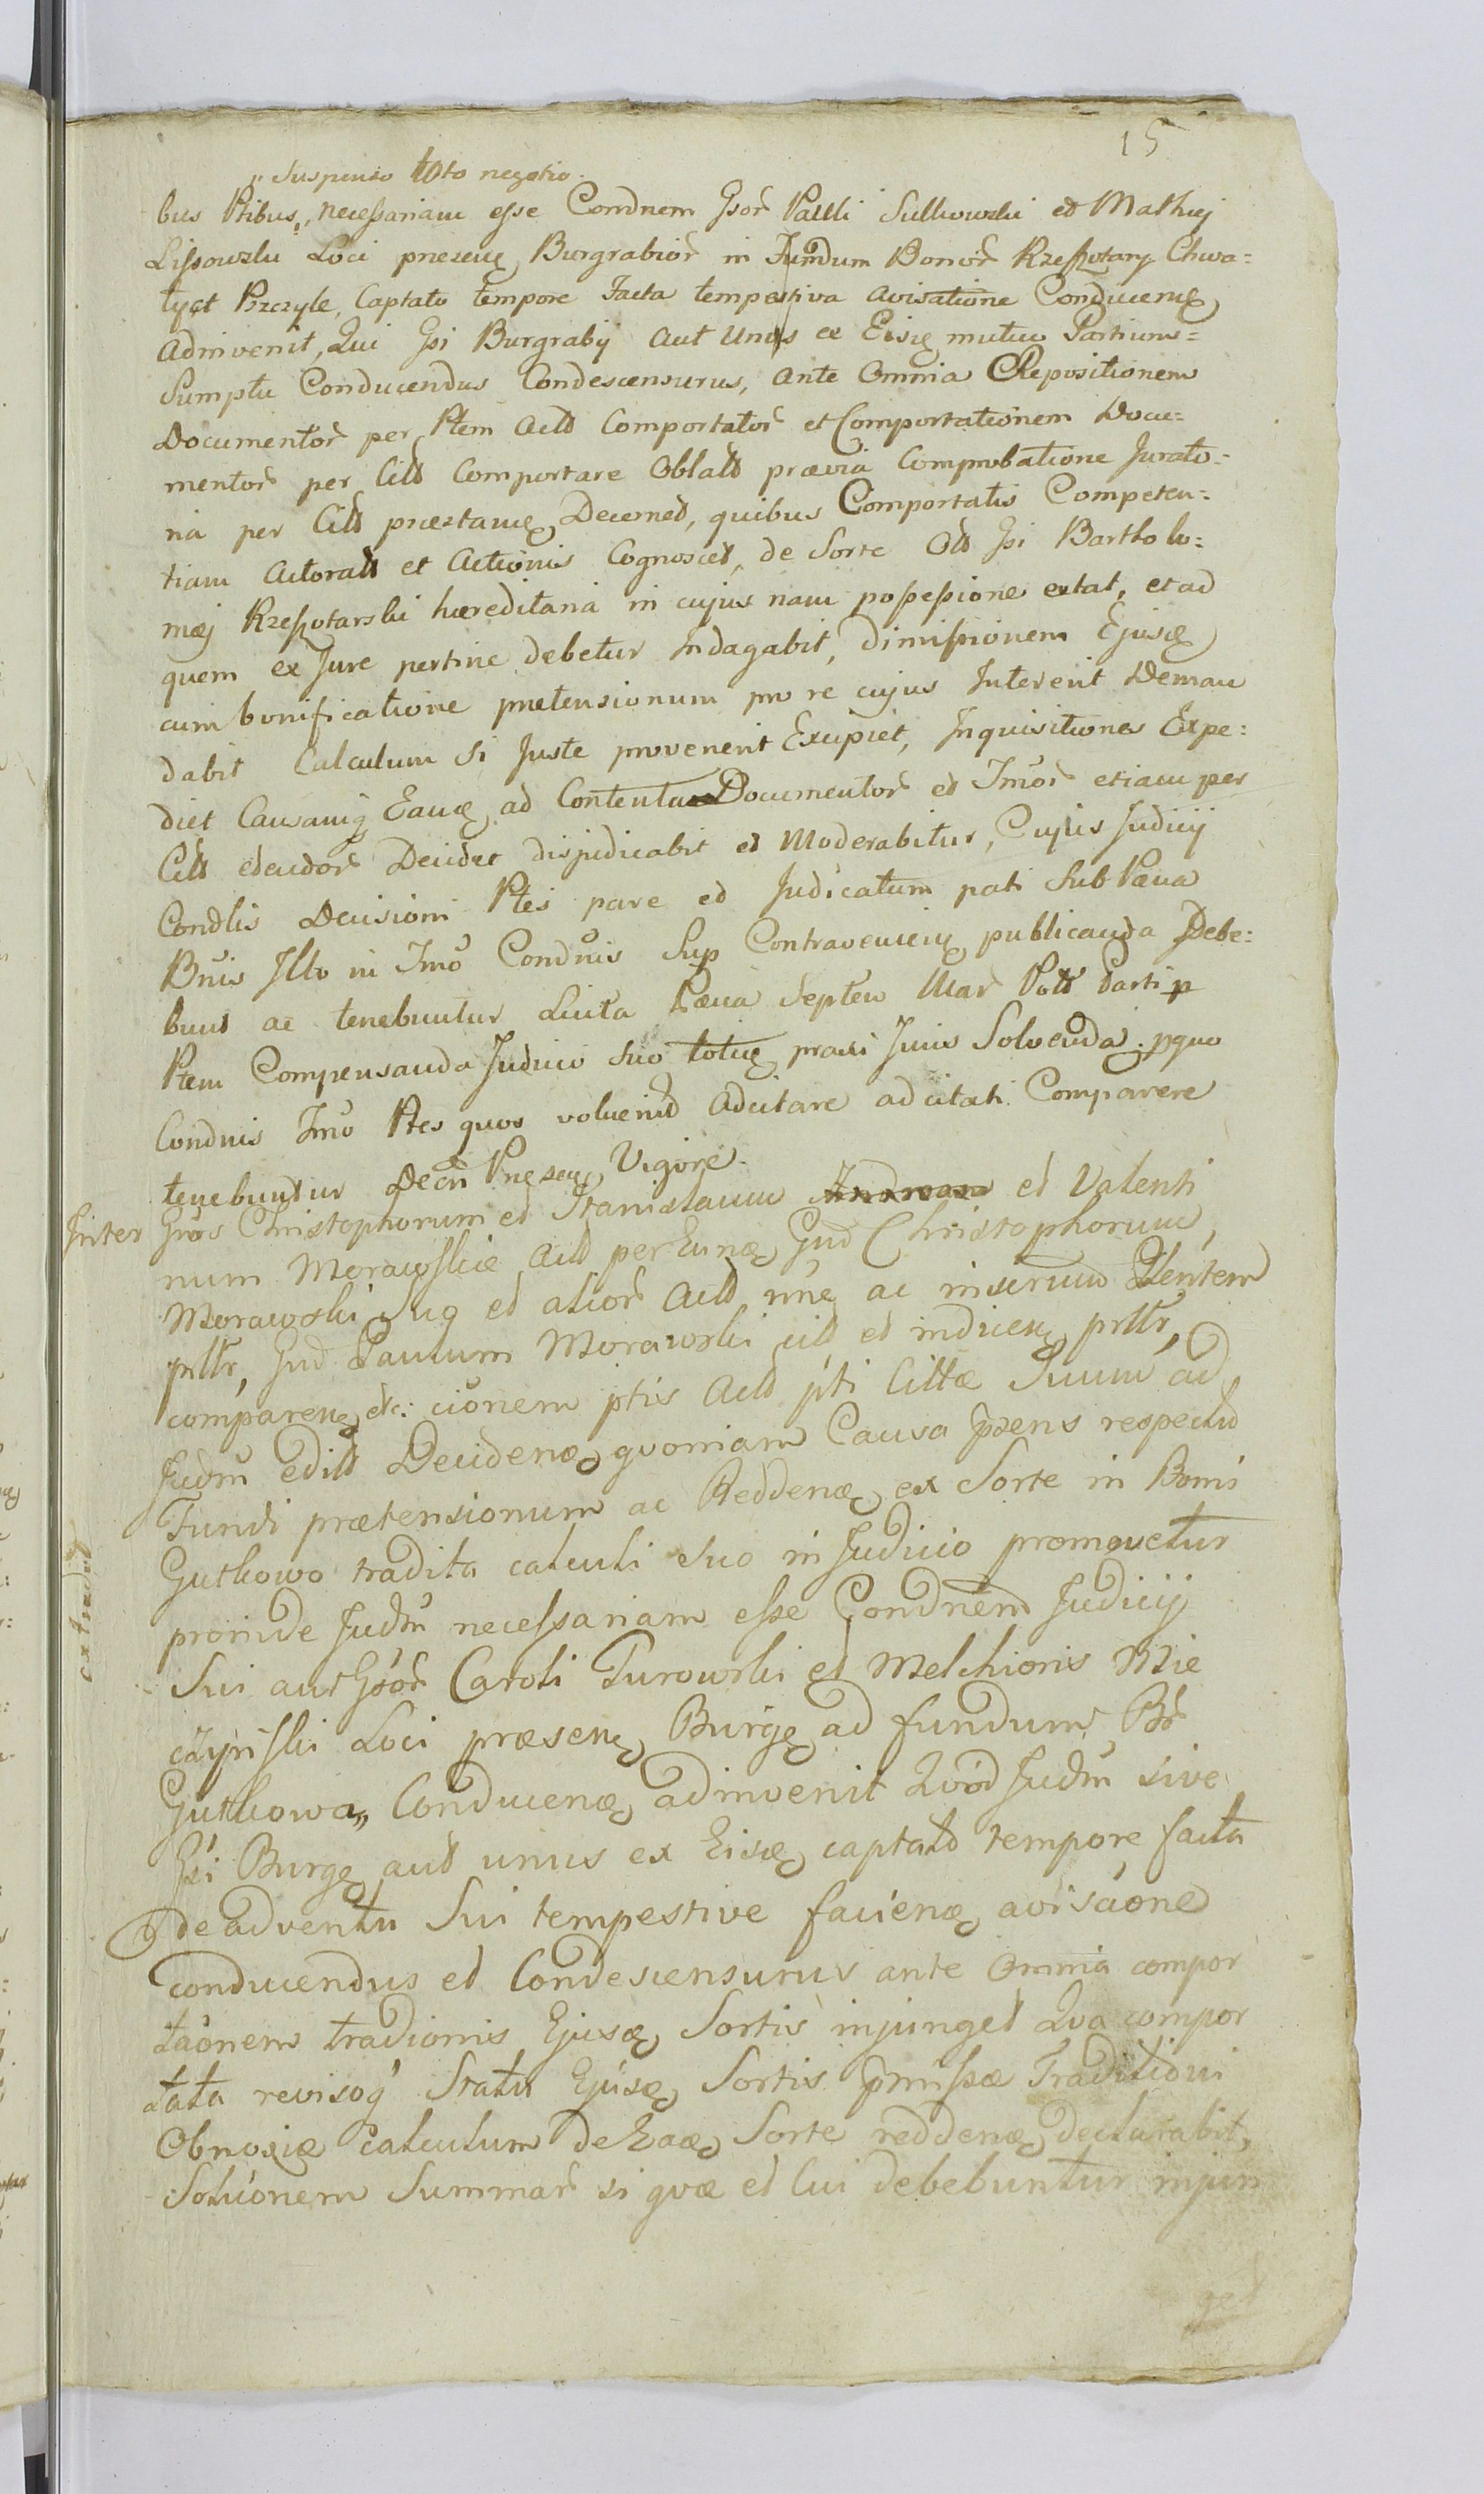 15
„ Suspenso toto negotio.
bus Ptibus „ necessariam esse Condnem Gsor Pauli Sulkowski et Mathiej
Lissowski Loci præsenę Burgrabior in Fundum Bonor Rzeszotary Chwa=
Captato tempore facta tempestiva avisatione Conducenę
adinvenit, Qui Gsi Burgrabij aut Unus ex Eisę mutuo Partium=
Sumptu Conducendus Condescensurus, ante Omnia Repositionem
Documentor per Ptem Actt Comportator et Comportationem Docu=
mentor per Citt Comportare Oblatt prævia Comprobatione Jurato=
ria per Citt præstanę Decernet, quibus Comportatis Competen=
tiam Actoratt et Actionis Cognoscet, de Sorte Ott Gsi Bartholo=
mæj Rzeszotarski hæreditaria in cujus nam possessione extat, et ad
quem ex Jure pertine debetur Indagabit, dimissionem Ejusę
cum bonificatione prætensionum pro re cujus Intererit Deman
dabit Calculum si Juste provenerit Excipiet, Inquisitiones Expe=
diet Causamq Eamę ad Contenta Documentor et Imor etiam per
Citt edendor Decidet disjudicabit et Moderabitur, Cujus Judicij
Condlis Decisioni Ptes pare et Judicatum pati Sub Pæna
Bnis Illo in Imo Condnis Sup Contravenienę publicanda Debe=
bunt ac tenebuntur Luita Pæna Septem Mar Pott Parti p
Ptem Compensanda Judicio suo totię praxi Juris Solvenda. pquo
Condnis Imo Ptes quos voluerint adcitare adcitati Comparere
tenebuntur Decri Præsenę Vigore.
Inter Gsos Christophorum et Stanislaum et Valenti
num Morawskie Actt per Eunę Gnd Christophorum
Morawski suo et alior Actt nne ac inserum Ptentem
prttr, Gnd Paulum Morawski citt et indicenę prttr,
comparenę etc: cionem ptis Actt pti Cittæ Suum ad
Judm editt Decidenę quoniam Causa præns respectu
Fundi prætensionum ac Reddenę ex Sorte in Bonis
Gutkowo tradita calculi Suo in Judicio promovetur
proinde Judm necessariam esse Condnem Judicij
Sui aut Gsor Caroli Turowski et Melchioris Mie
czynski Loci præsenę Burgę ad fundum Br
Gutkowa„ Conducenę adinvenit Quod Judm sive
Gsi Burgę aut unus ex Eisę captato tempore facta
de adventu Sui tempestive facienę avisaone
conducendus et Condescensurus ante Omnia compor
taonem tradionis Ejusę Sortis injunget Qva compor
tata revisoq Statu Ejusę Sortis præmissæ Traditioni
Obnoxiæ Calculum de Eaę Sorte reddenę declarabit,
Soluonem Summar si quæ et Cui debebuntur injun
get
extradit